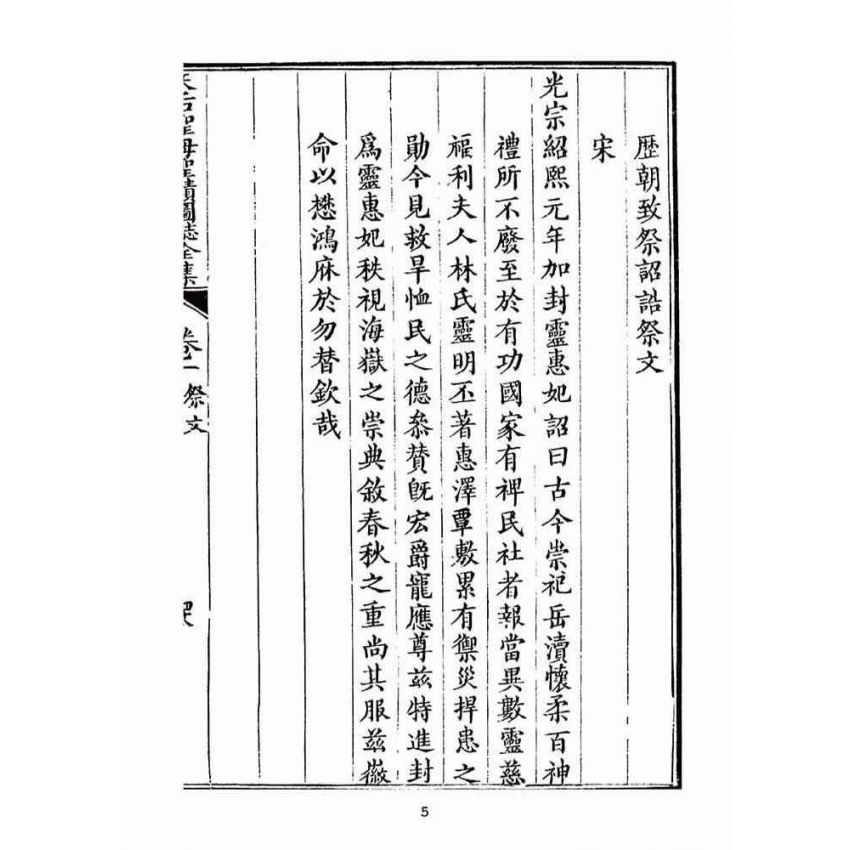 歷朝致祭詔誥祭文
宋
光宗紹熙元年加封靈惠妃詔曰古今崇祀岳瀆懷柔百神
禮所不廢至於有功國家有裨民社者報當異數靈慈
福利夫人林氏靈明丕著惠澤覃敷累有禦災捍患之
勛今見救旱恤民之德叅贊旣宏爵寵應尊兹特進封
爲靈惠妃秩視海嶽之崇典敘春秋之重尚其服兹徽
命以懋鴻庥於勿替欽哉
聖母聖蹟圖誌全集
卷一
祭文
5